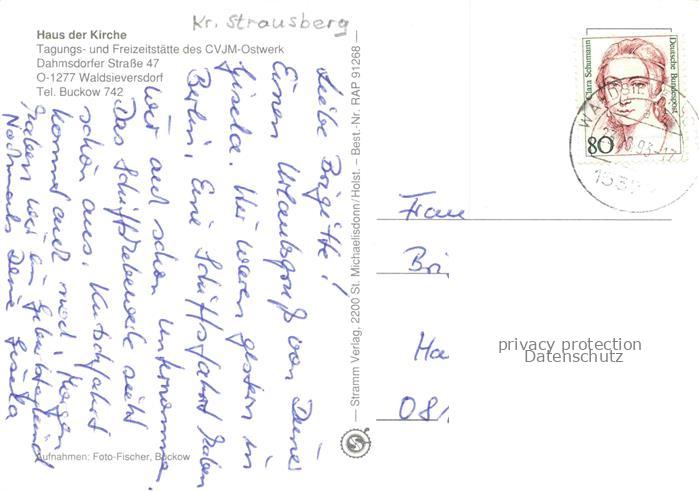 Kr. Strausberg
Haus der Kirche
Tagungs- und Freizeitstätte des CVJM-Ostwerk
Dahmsdorfer Straße 47
O-1277 Waldsieversdorf
Tel. Buckow 742
Liebe Brigitte!
Einen Urlaubsgruß von Deiner
Gisela. Wir waren gestern in
Berlin. Eine Schiffsfahrt haben
wir auch schon unternommen.
Das Schiffshebewerk sieht
schön aus. Kutschfahrt
kommt auch noch. Morgen
haben wir ein Geburtstagskind
Nochmals Deine Gisela
Aufnahmen: Foto-Fischer, Buckow
— Stramm Verlag, 2200 St. Michaelisdonn/Holst. – Best.-Nr. RAP 91268 —
Clara Schumann
Deutsche Bundespost
80
Frau
Bri
Ha
08
privacy protection
Datenschutz